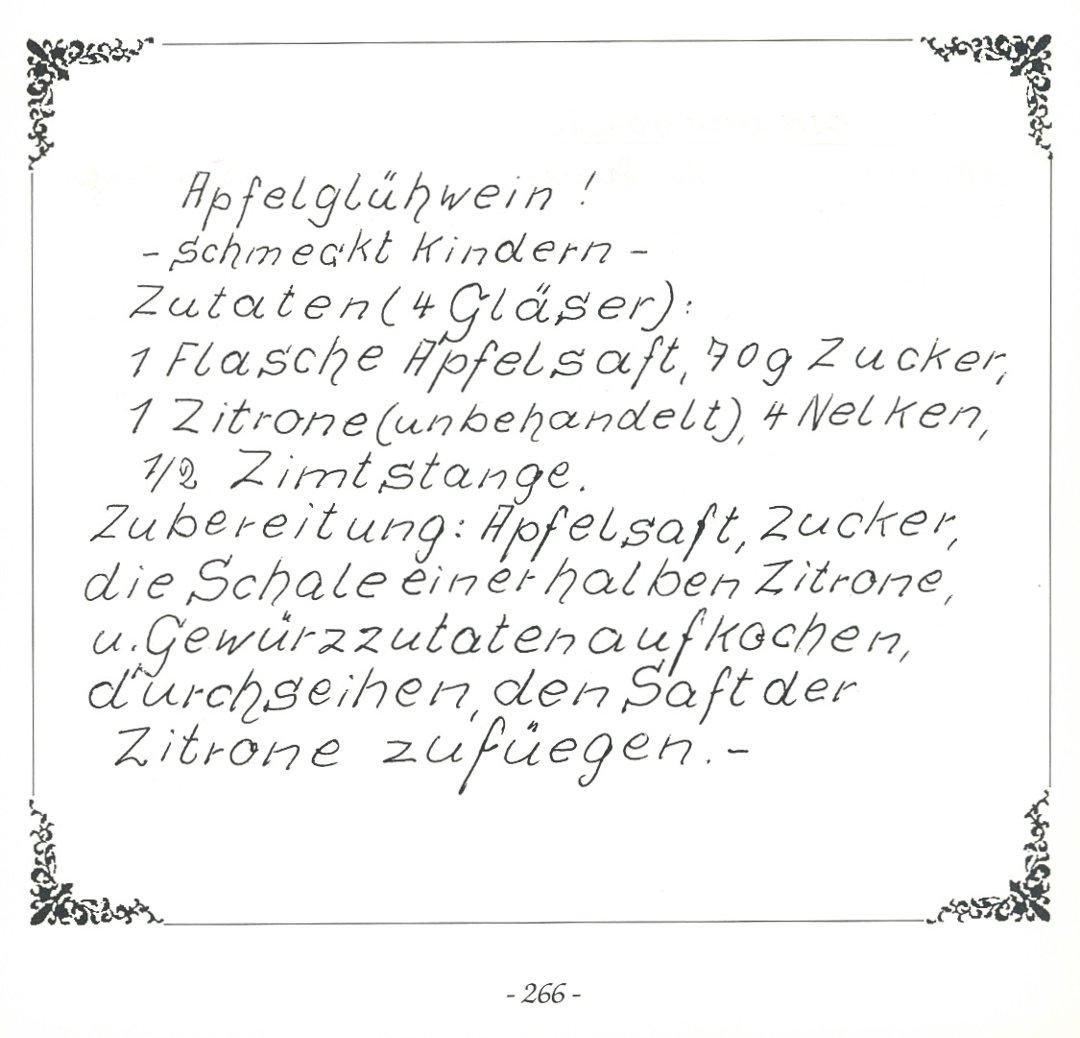 Apfelglühwein !
- schmeckt Kindern -
Zutaten (4 Gläser):
1 Flasche Apfelsaft, 70g Zucker,
1 Zitrone (unbehandelt), 4 Nelken,
1/2 Zimtstange.
Zubereitung: Apfelsaft, Zucker,
die Schale einer halben Zitrone,
u. Gewürzzutaten aufkochen,
durchseihen, den Saft der
Zitrone zufüegen. -
- 266 -